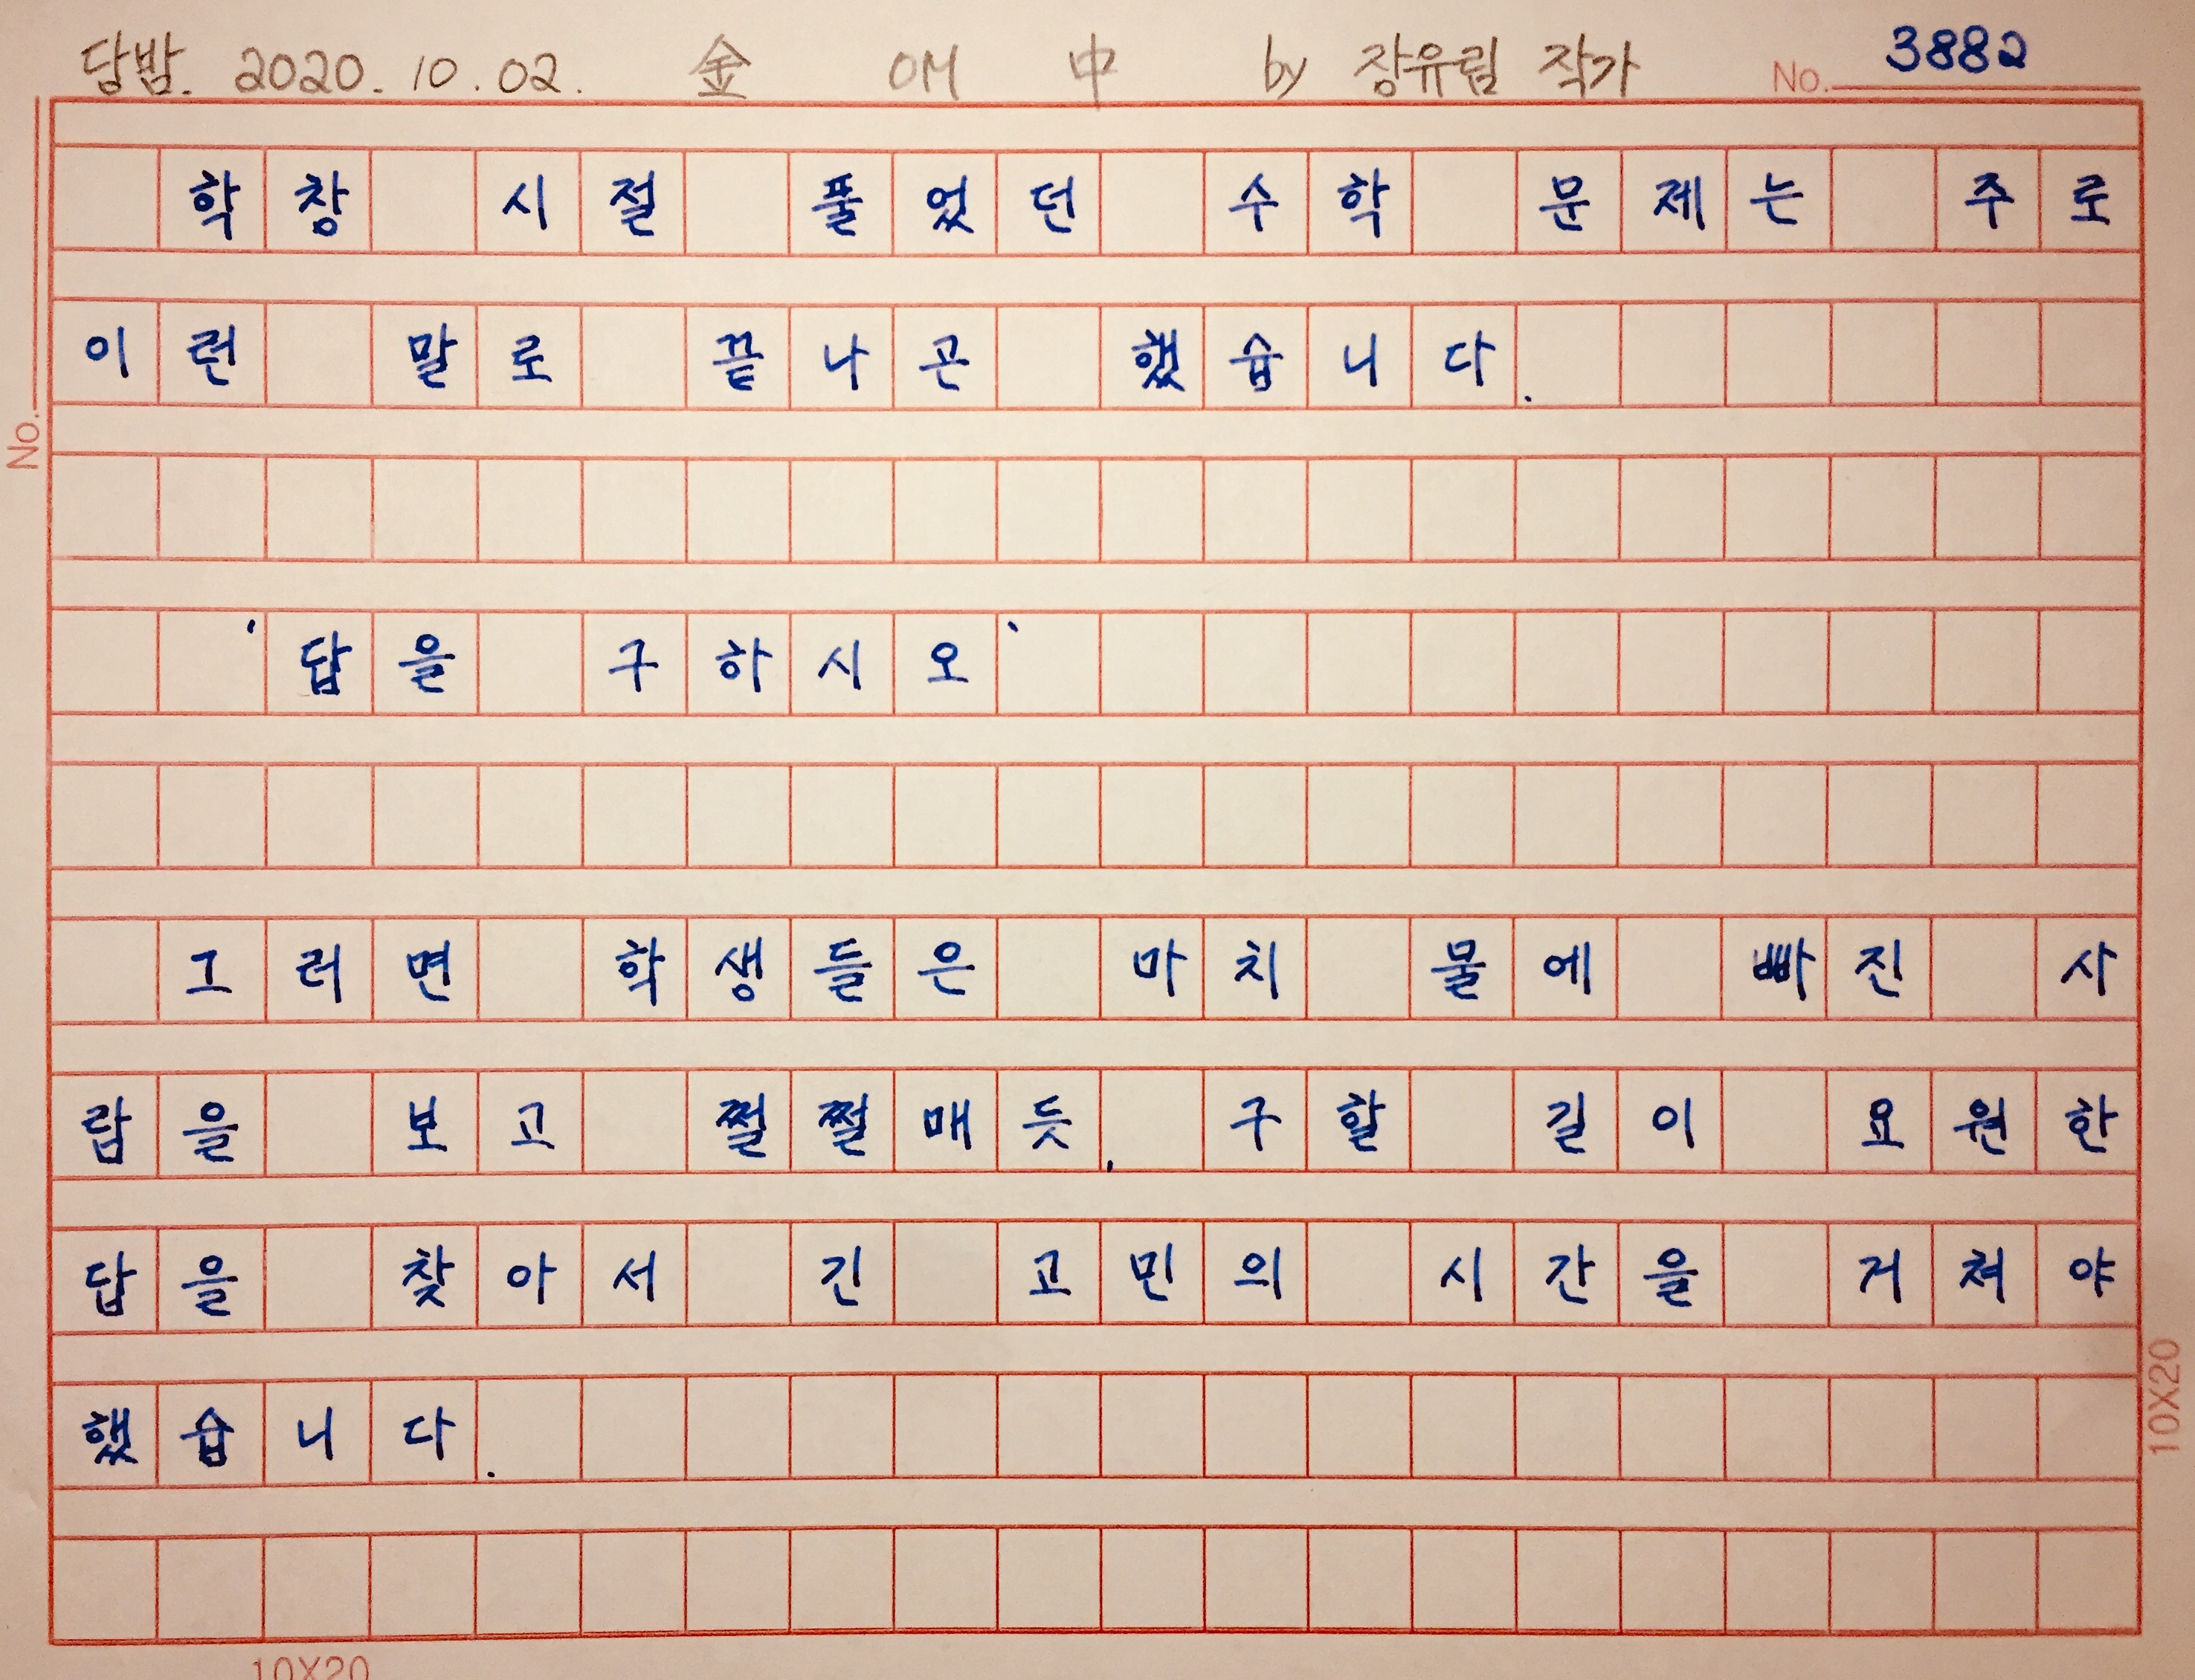 답밤. 2020. 10. 02. 金 OM 中 by 장유림 작가 No. 3882
학창 시절 풀었던 수학 문제는 주로
이런 말로 끝나곤 했습니다.
No.
'답을 구하시오'
그러면 학생들은 마치 물에 빠진 사
람을 보고 쩔쩔매듯, 구할 길이 요원한
답을 찾아서 긴 고민의 시간을 거쳐야
했습니다.
10X20
10X20